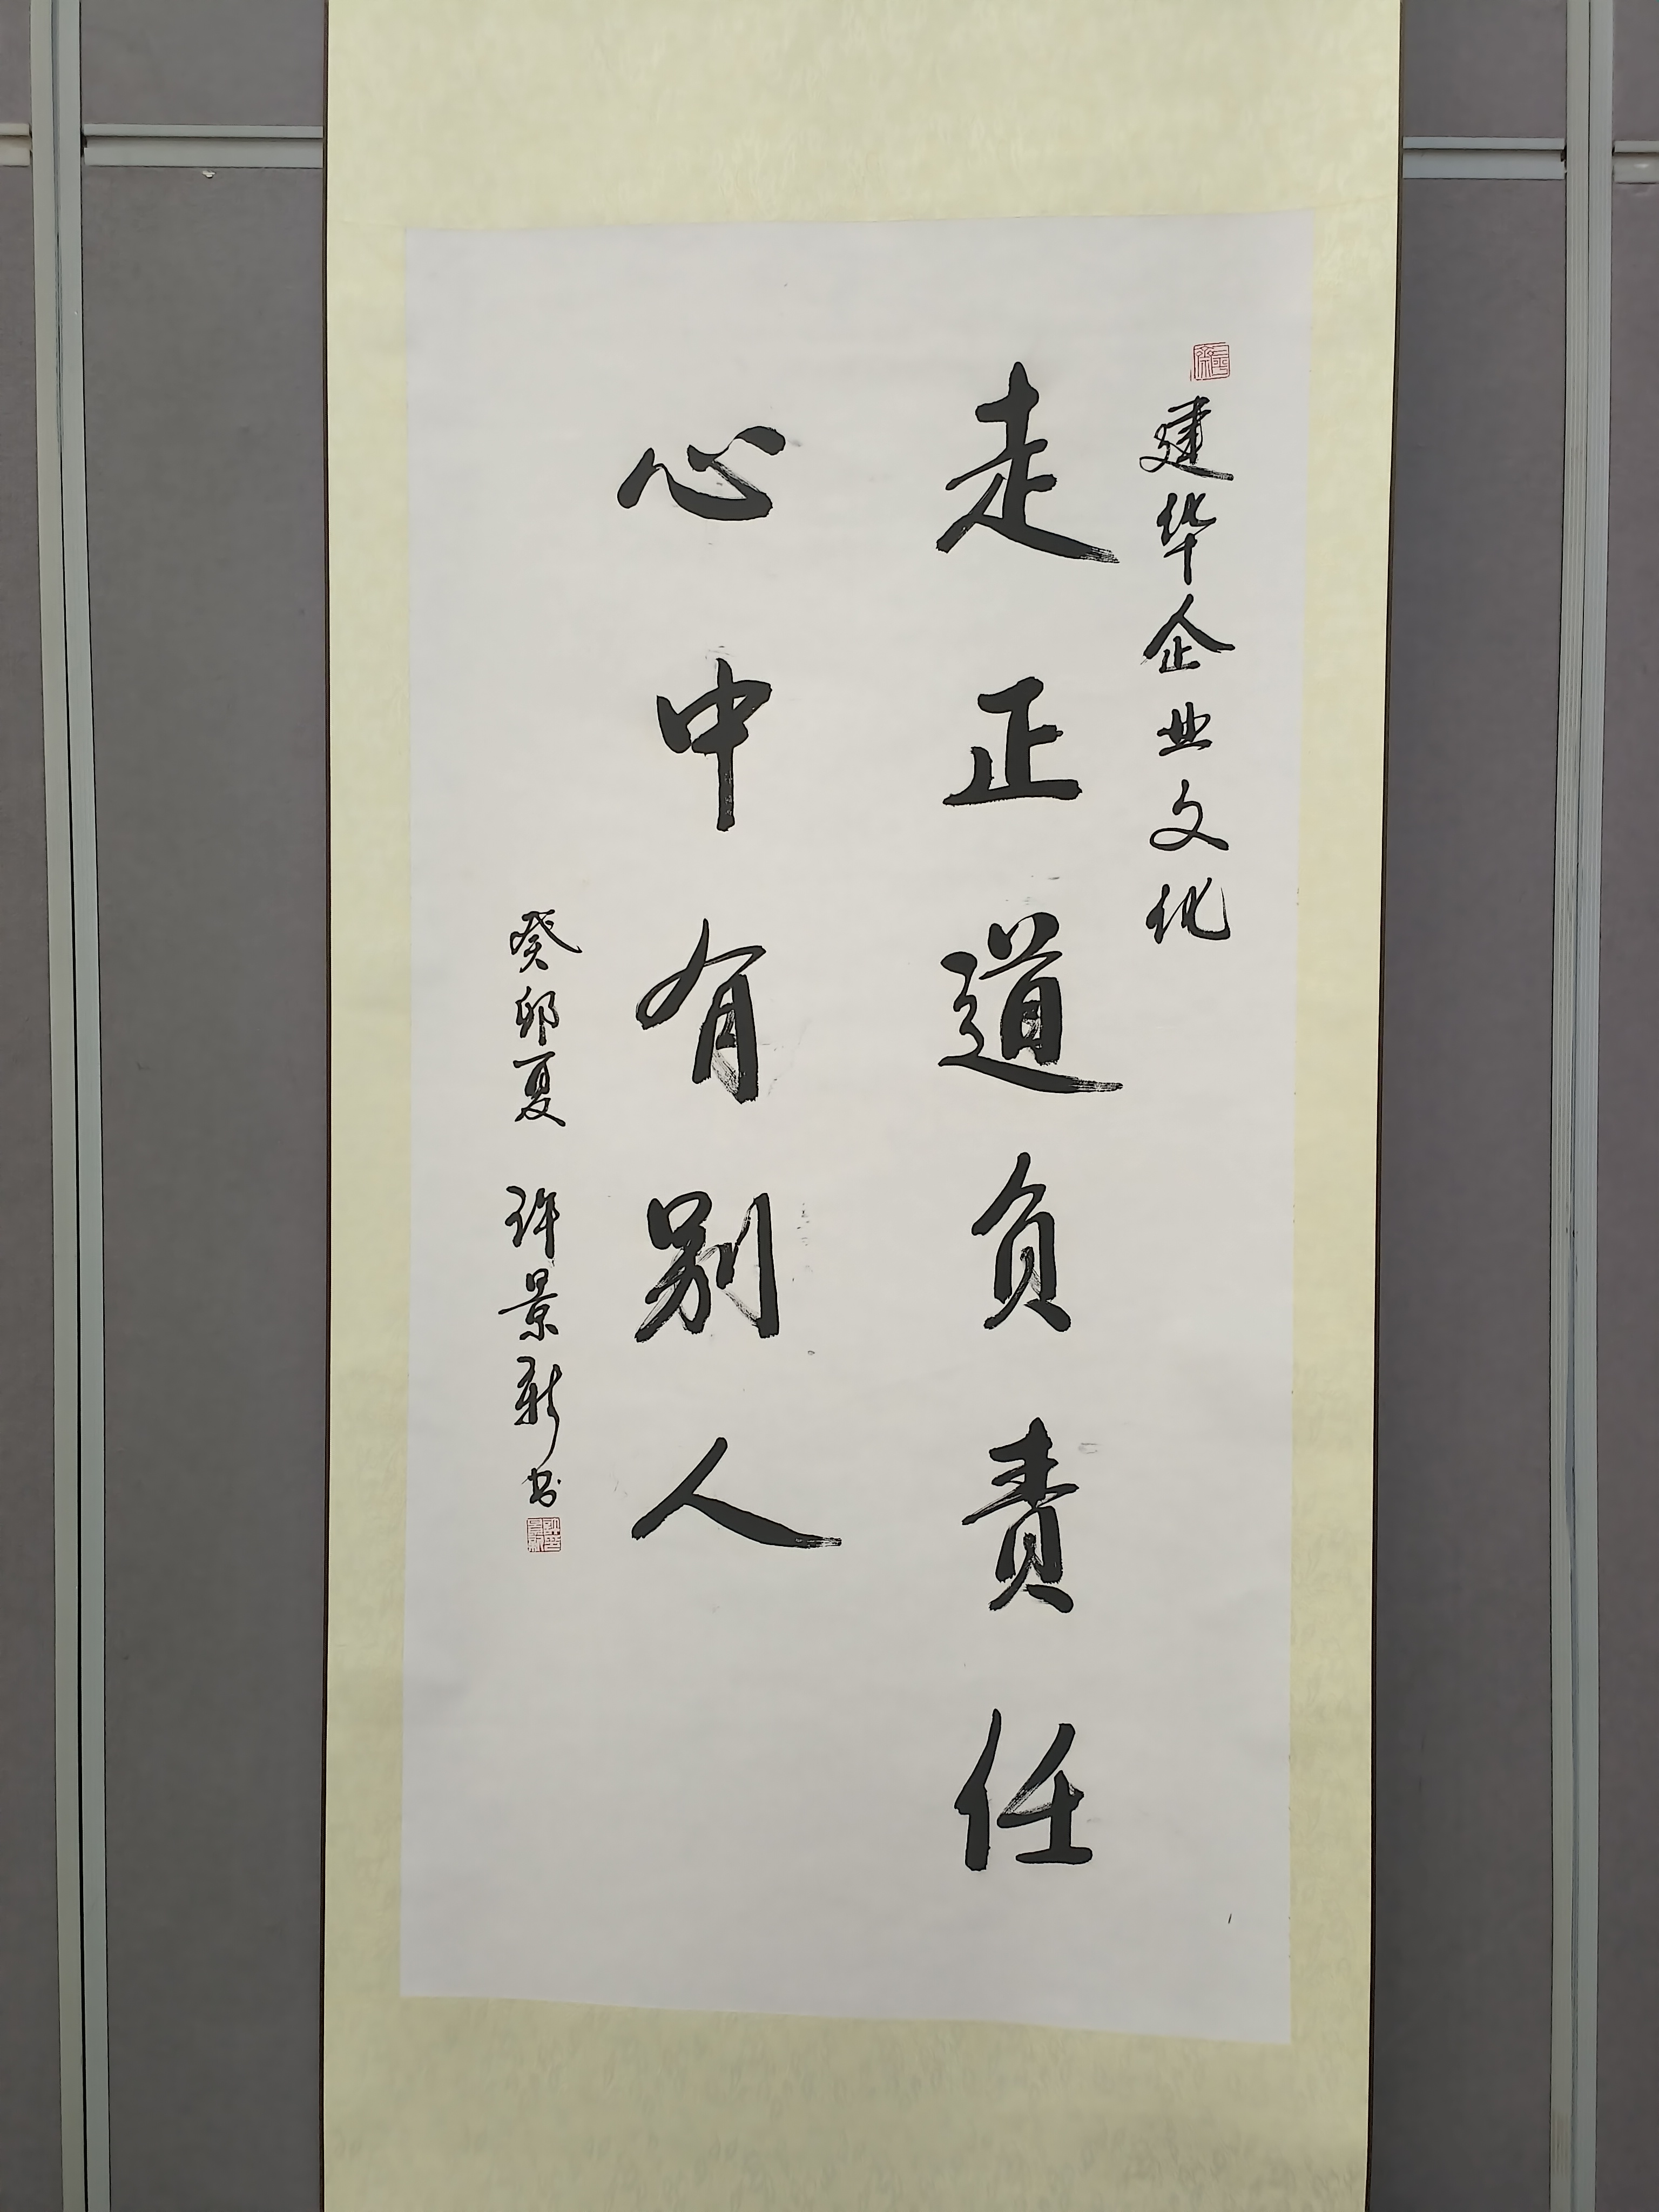 建华企业文化
走正道负责任
心中有别人
癸卯夏 许景新书